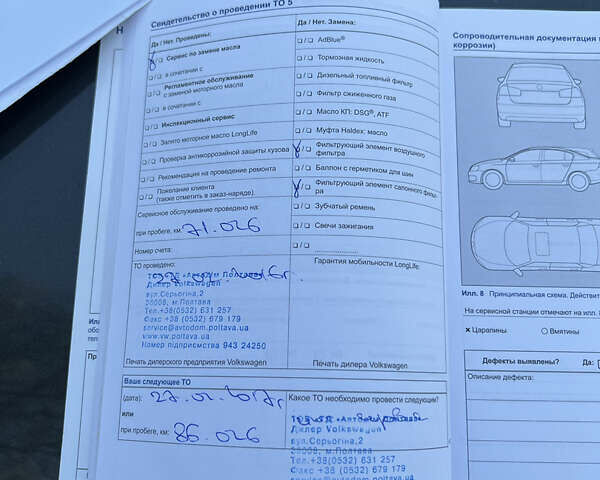 Свидетельство о проведении ТО 5
Да / Нет. Проведены:
Сервис по замене масла
в сочетании с
Регламентное обслуживание
с заменой моторного масла
в сочетании с
Инспекционный сервис
Залито моторное масло LongLife
Проверка антикоррозийной защиты кузова
Рекомендация на проведение ремонта
Пожелание клиента
(также отметить в заказ-наряде).
Сервисное обслуживание проведено на:
при пробеге, км: 71.026
Номер счета:
ТО проведено:
Дилер Volkswagen
вул.Серьогіна,2
36008, м.Полтава
Тел.+38(0532) 631 257
Факс +38 (0532) 679 179
service@avtodom.poltava.ua
www.vw.poltava.ua
Номер підприємства 943 24250
Печать дилерского предприятия Volkswagen
Да / Нет. Замена:
AdBlue®
Тормозная жидкость
Дизельный топливный фильтр
Фильтр сжиженного газа
Масло КП: DSG®, ATF
Муфта Haldex: масло
Фильтрующий элемент воздушного
фильтра
Баллон с герметиком для шин
Фильтрующий элемент салонного филь-
ра
Зубчатый ремень
Свечи зажигания
Гарантия мобильности LongLife:
Печать дилера Volkswagen
Ваше следующее ТО
(дата): 27.02.2017г
или
при пробеге, км: 86.026
Какое ТО необходимо провести следующим?
Дилер Volkswagen
вул.Серьогіна,2
36008, м.Полтава
Тел.+38(0532) 631 257
Факс +38 (0532) 679 179
service@avtodom.poltava.ua
Сопроводительная документация
коррозии)
Илл. 8 Принципиальная схема. Действит
На сервисной станции отмечают на илл. 8
× Царапины
Вмятины
Дефекты выявлены? Да:
Описание дефекта: